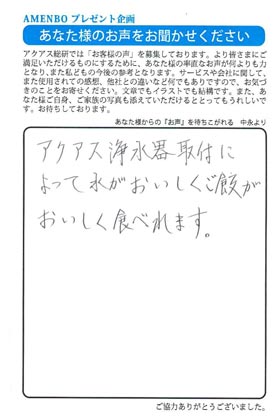 AMENBO プレゼント企画
あなた様のお声をお聞かせください
アクアス総研では「お客様の声」を募集しております。より皆さまにご
満足いただけるものにするために、あなた様の率直なお声が何よりも力
となり、また私どもの今後の参考となります。サービスや会社に関して、
また使用されての感想、他社との違いなど何でもありですので、お気づ
きのことをお寄せください。文章でもイラストでも結構です。また、あ
なた様ご自身、ご家族の写真も添えていただけるととってもうれしいで
す。お待ちしております。
あなた様からの『お声』を待ちこがれる 中永より
アクアス浄水器取付に
よって水がおいしくご飯が
おいしく食べれます。
ご協力ありがとうございました。